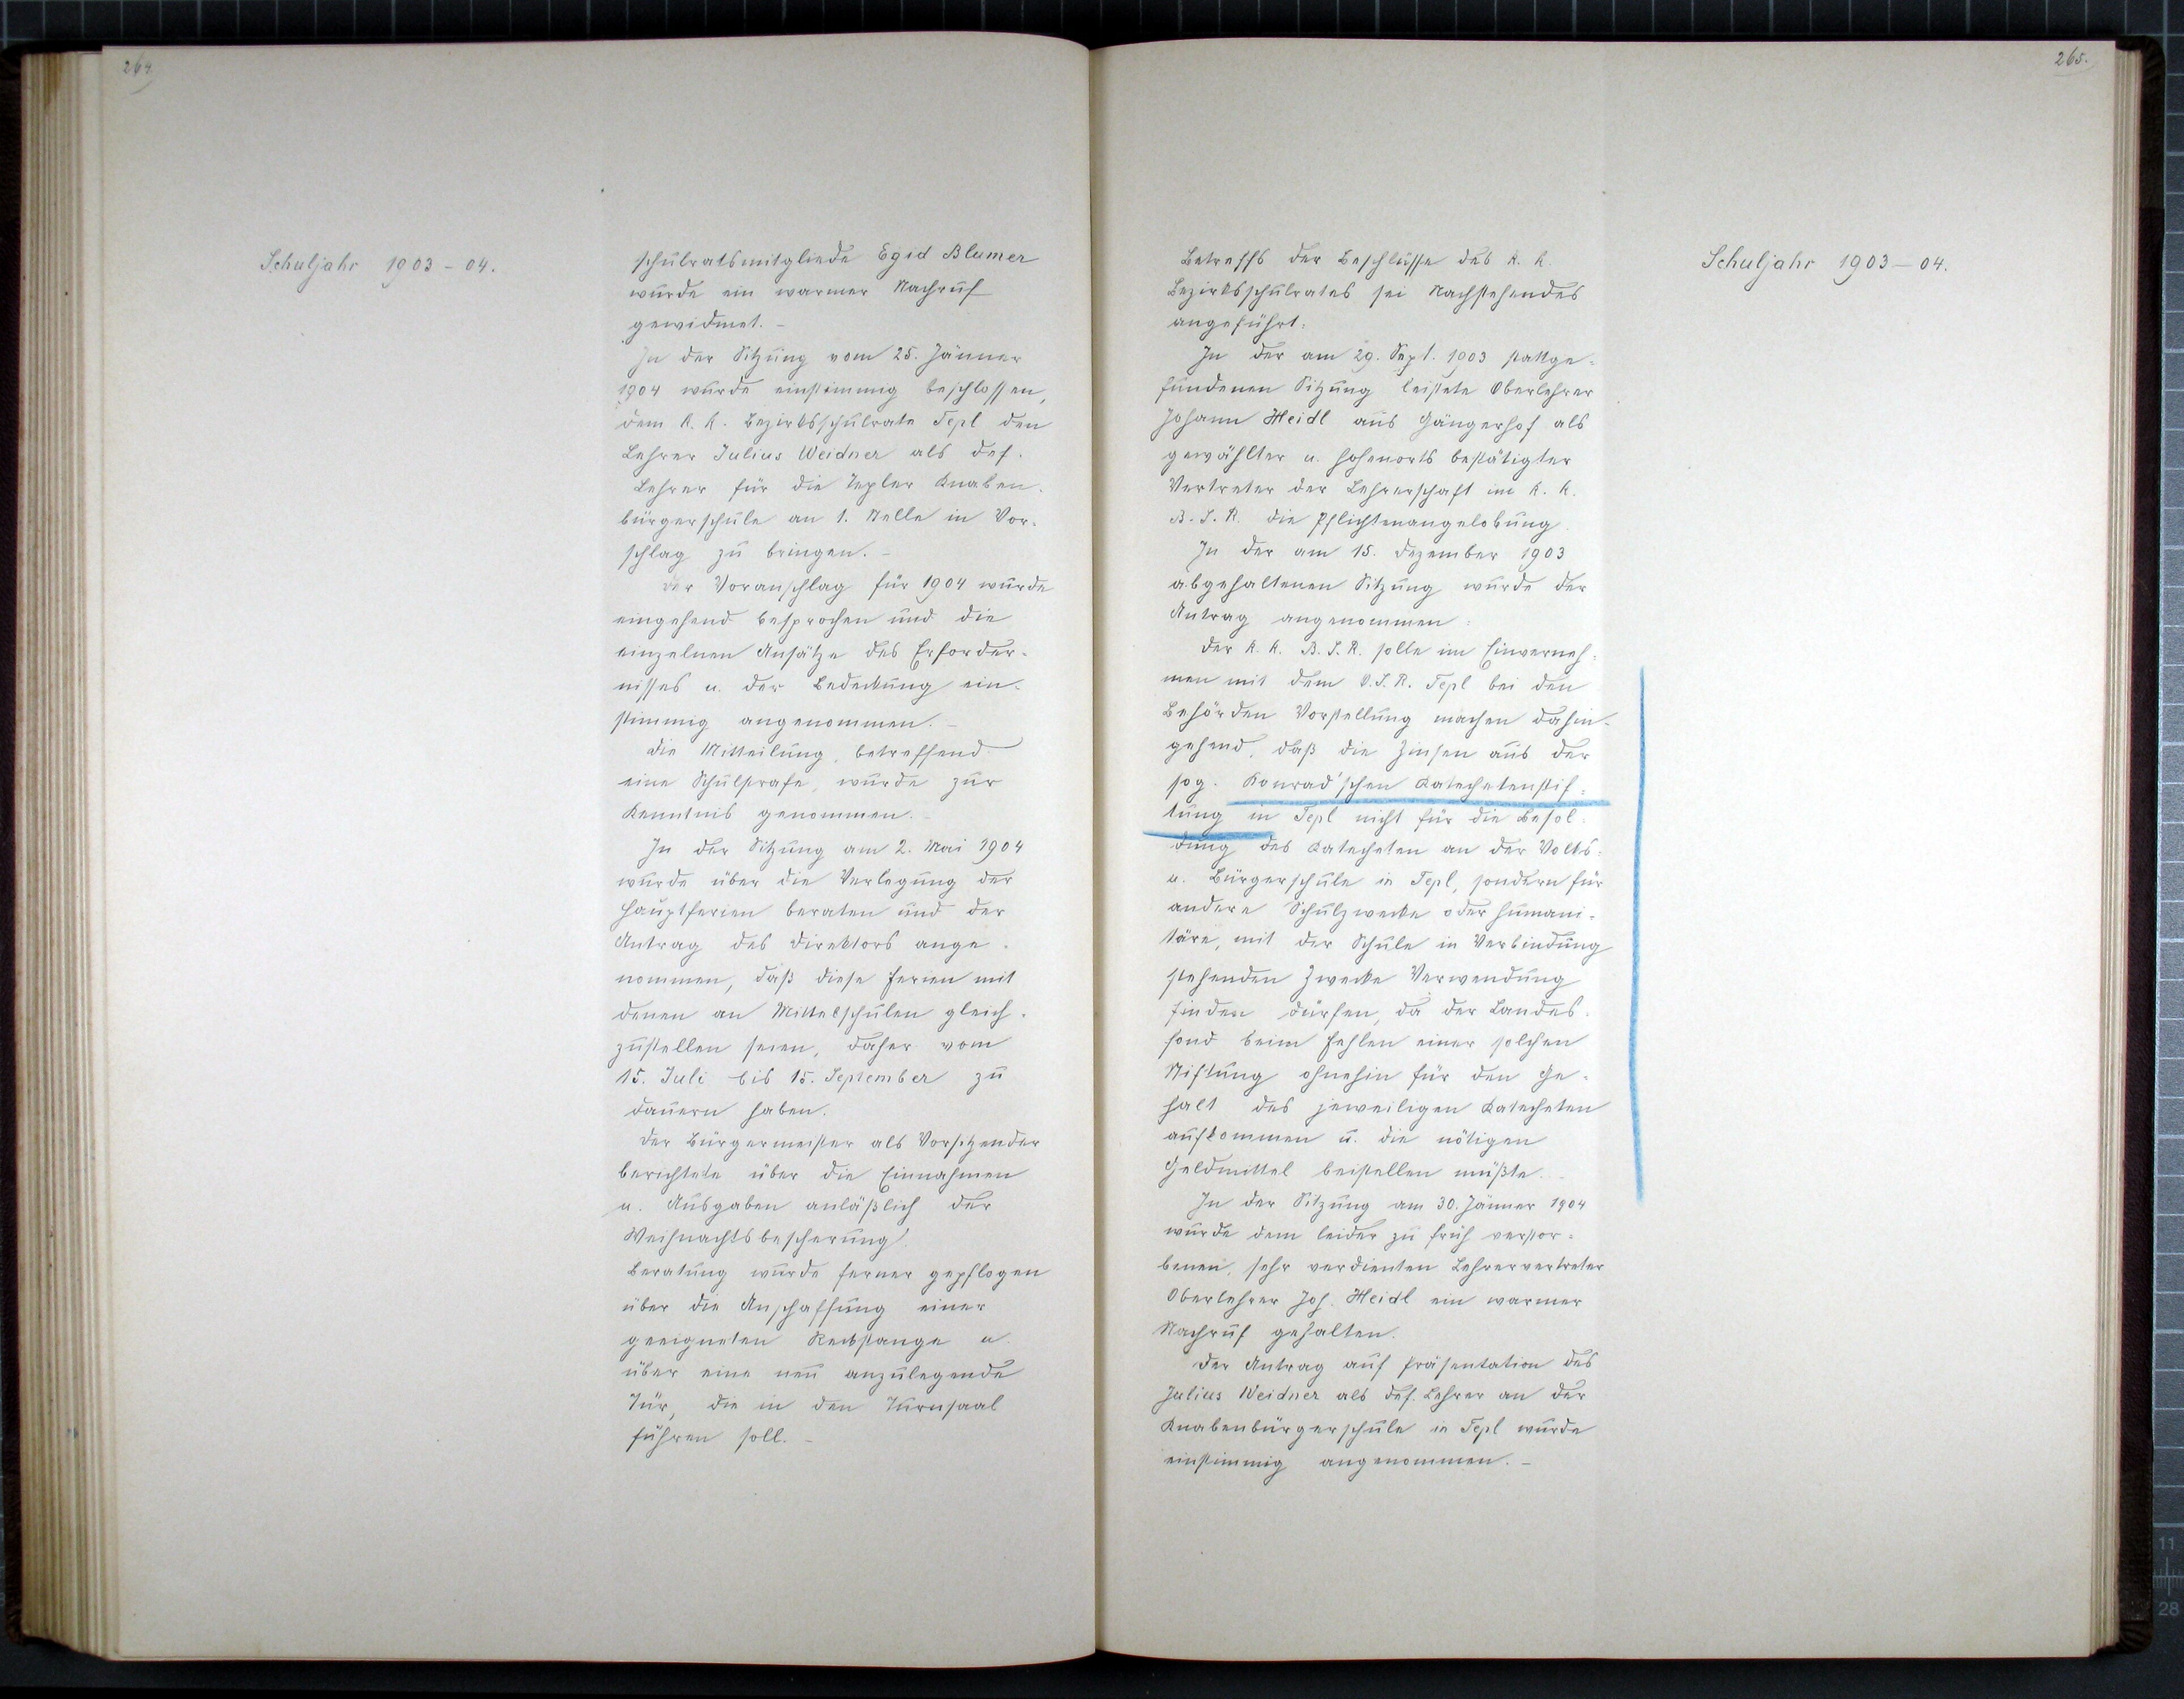 264.
Schuljahr 1903 - 04.
schulratsmitgliede Egid Blumer
wurde ein warmer Nachruf
gewidmet. -
In der Sitzung vom 25. Jänner
1904 wurde einstimmig beschlossen,
dem k. k. Bezirksschulrate Tepl den
Lehrer Julius Weidner als def.
Lehrer für die Tepler Knaben-
bürgerschule an 1. Stelle in Vor-
schlag zu bringen. -
Der Voranschlag für 1904 wurde
eingehend besprochen und die
einzelnen Ansätze des Erforder-
nisses u. der Bedeckung ein-
stimmig angenommen. -
Die Mitteilung, betreffend
eine Schulstrafe, wurde zur
Kenntnis genommen. -
In der Sitzung am 2. Mai 1904
wurde über die Verlegung der
Hauptferien beraten und der
Antrag des Direktors ange-
nommen, daß diese Ferien mit
denen an Mittelschulen gleich-
zustellen seien, daher vom
15. Juli bis 15. September zu
dauern haben.
Der Bürgermeister als Vorsitzender
berichtete über die Einnahmen
u. Ausgaben anläßlich der
Weihnachtsbescherung.
Beratung wurde ferner gepflogen
über die Anschaffung einer
geeigneten Reckstange u.
über eine neu anzulegende
Tür, die in den Turnsaal
führen soll. -
265.
Schuljahr 1903 - 04.
Betreffs der Beschlüsse des k. k.
Bezirksschulrates sei Nachstehendes
angeführt:
In der am 29. Sept. 1903 stattge-
fundenen Sitzung leistete Oberlehrer
Johann Heidl aus Gängerhof als
gewählter u. hohenorts bestätigter
Vertreter der Lehrerschaft im k. k.
B. S. R. die Pflichtenangelobung.
In der am 15. Dezember 1903
abgehaltenen Sitzung wurde der
Antrag angenommen:
Der k. k. B. S. R. solle im Einverneh-
men mit dem O. S. R. Tepl bei den
Behörden Vorstellung machen dahin-
gehend, daß die Zinsen aus der
sog. Konrad'schen Katechetenstif-
tung in Tepl nicht für die Besol-
dung des Katecheten an der Volks-
u. Bürgerschule in Tepl, sondern für
andere Schulzwecke oder humani-
täre, mit der Schule in Verbindung
stehenden Zwecke Verwendung
finden dürfen, da der Landes-
fond beim Fehlen einer solchen
Stiftung ohnehin für den Ge-
halt des jeweiligen Katecheten
aufkommen u. die nötigen
Geldmittel beistellen müßte. -
In der Sitzung am 30. Jänner 1904
wurde dem leider zu früh verstor-
benen, sehr verdienten Lehrervertreter
Oberlehrer Joh. Heidl ein warmer
Nachruf gehalten.
Der Antrag auf Präsentation des
Julius Weidner als def. Lehrer an der
Knabenbürgerschule in Tepl wurde
einstimmig angenommen. -
11
28